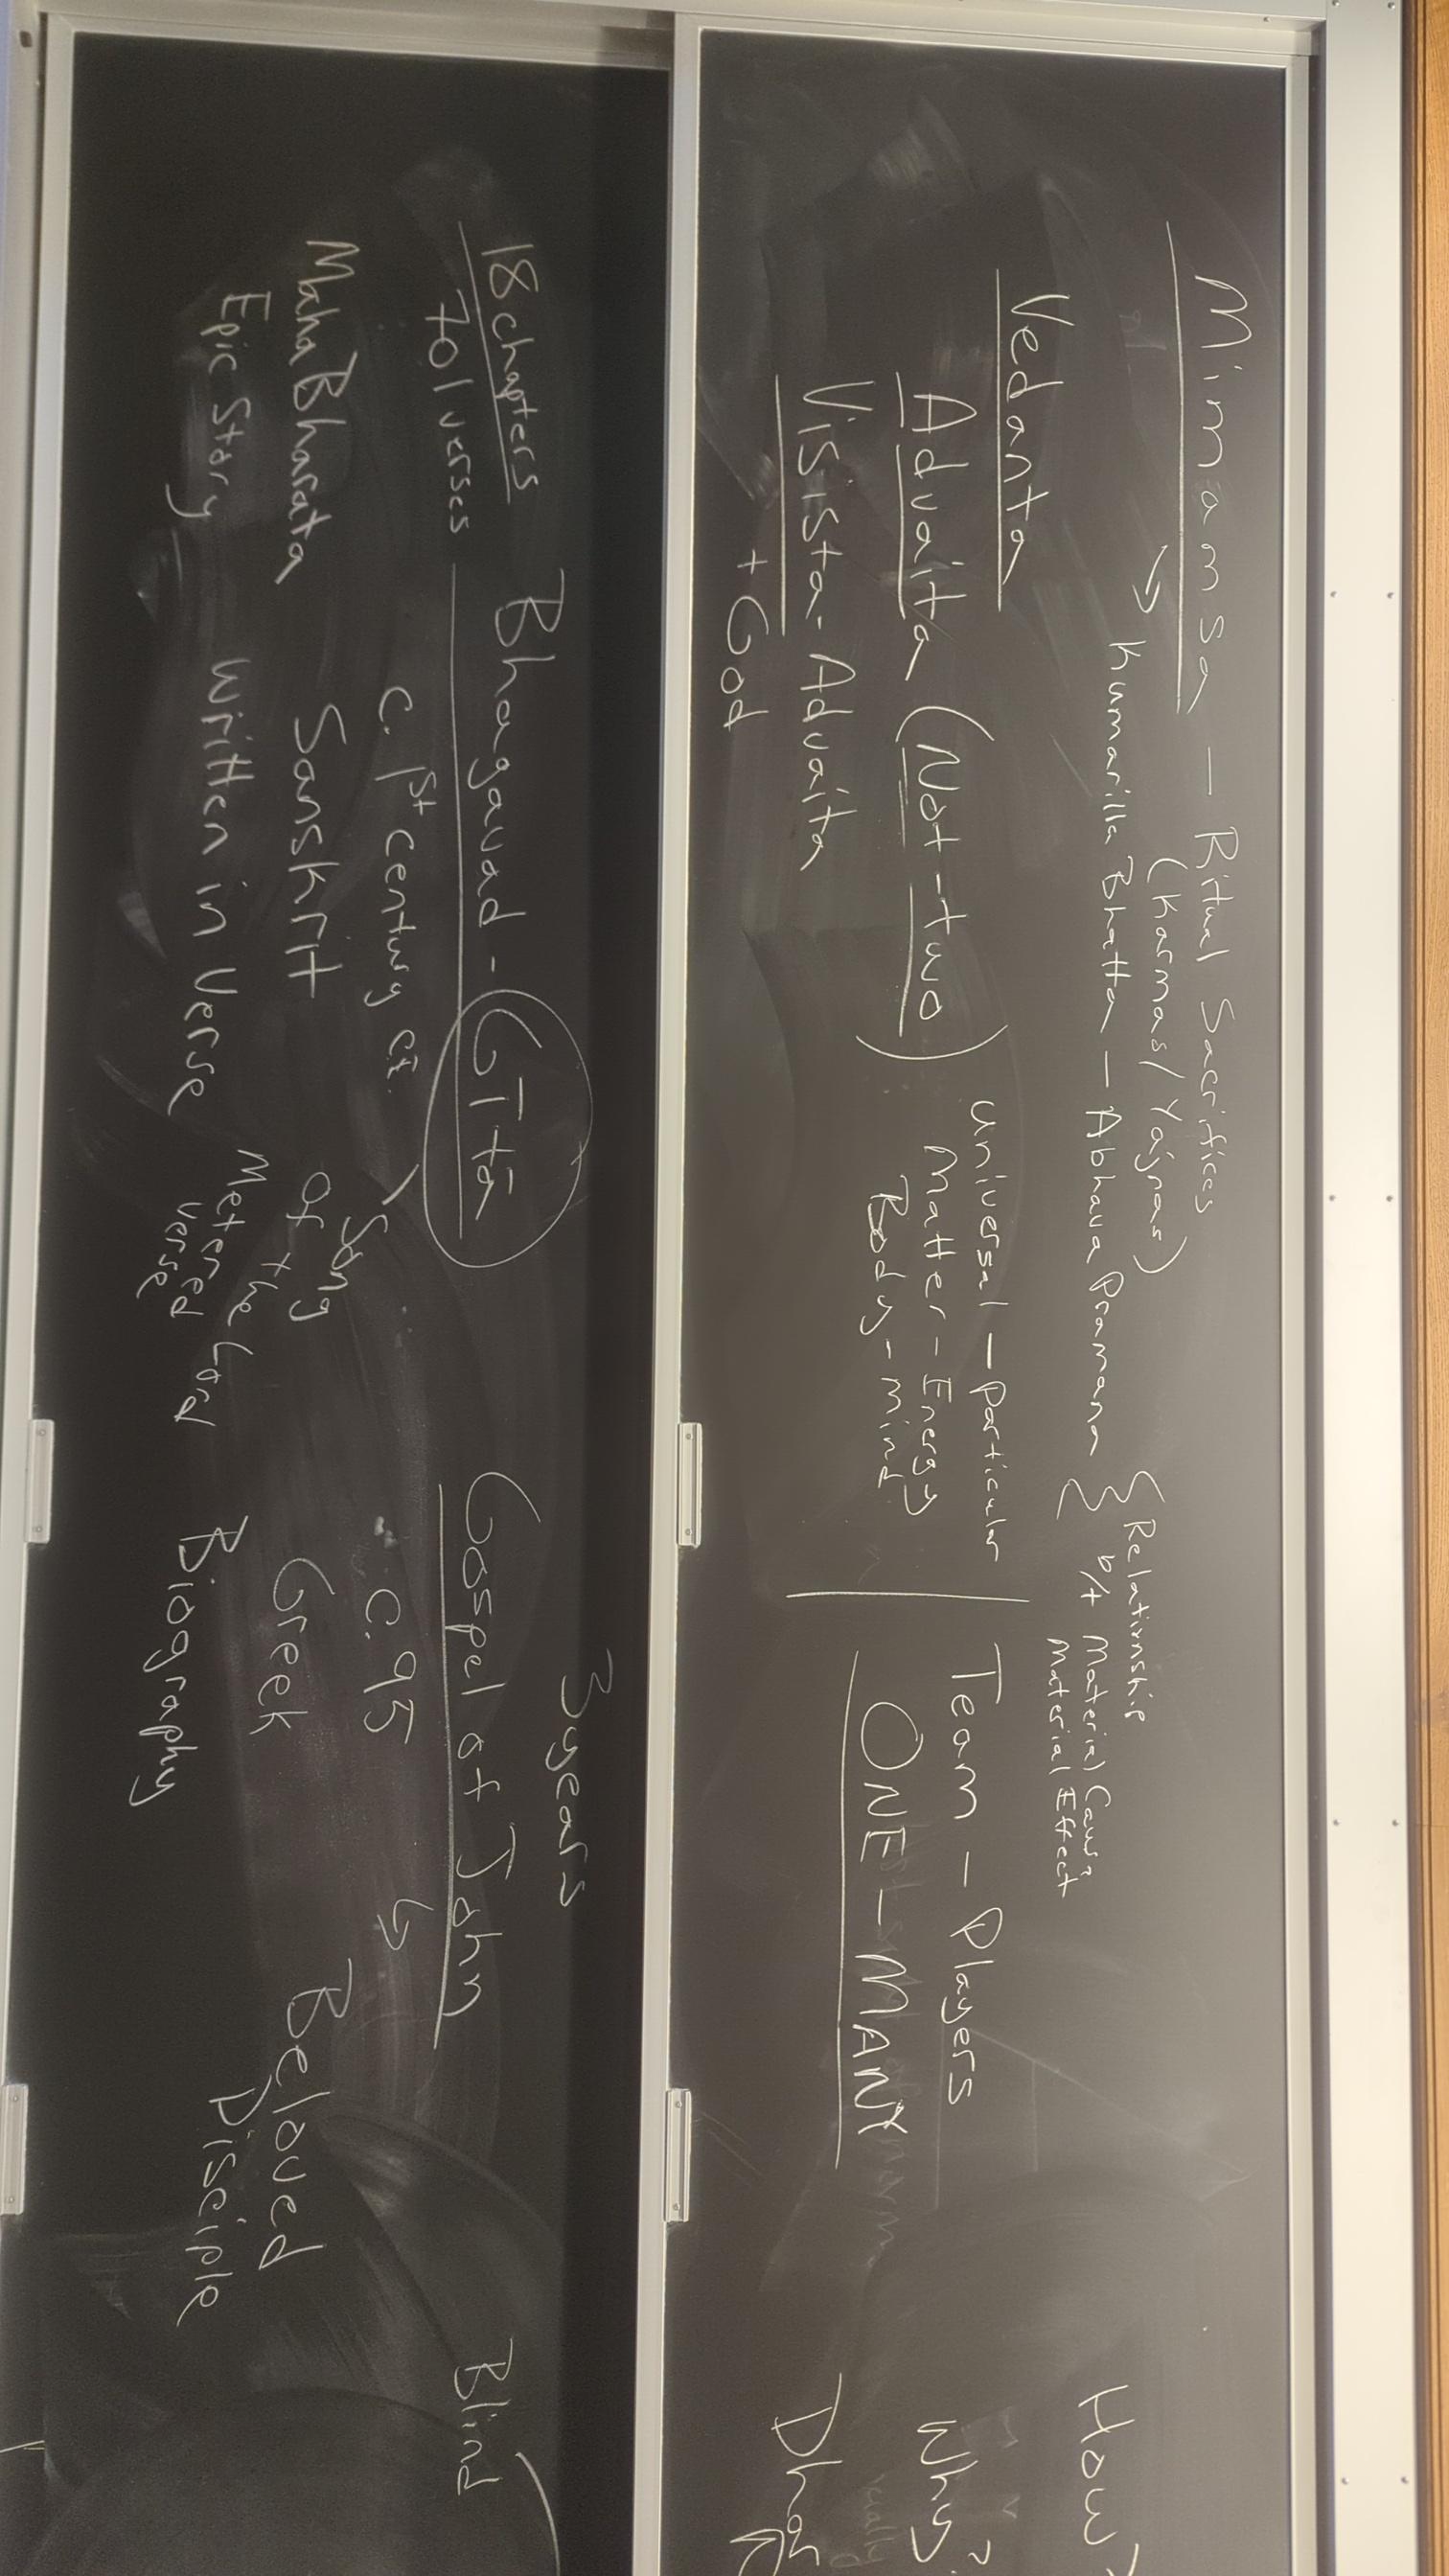 Mimamsa — Ritual Sacrifices
(Karmas/Yajnas)
Kumarilla Bhatta — Abhava Pramana
Relationship
b/t Material Cause
Material Effect
Vedanta
Advaita (Not-two)
Visista-Advaita
+ God
Universal — Particular
Matter - Energy
Body - Mind
Team - Players
ONE - MANY
How?
Why?
Dhar
18 chapters
701 verses
MahaBharata
Epic Story
Bhagavad - GĪtā
c. 1st century CE.
Sanskrit
Written in Verse
Song
of
the Lord
Metered
verse
3 years
Gospel of John
c. 95
Greek
Biography
Beloved
Disciple
Blind